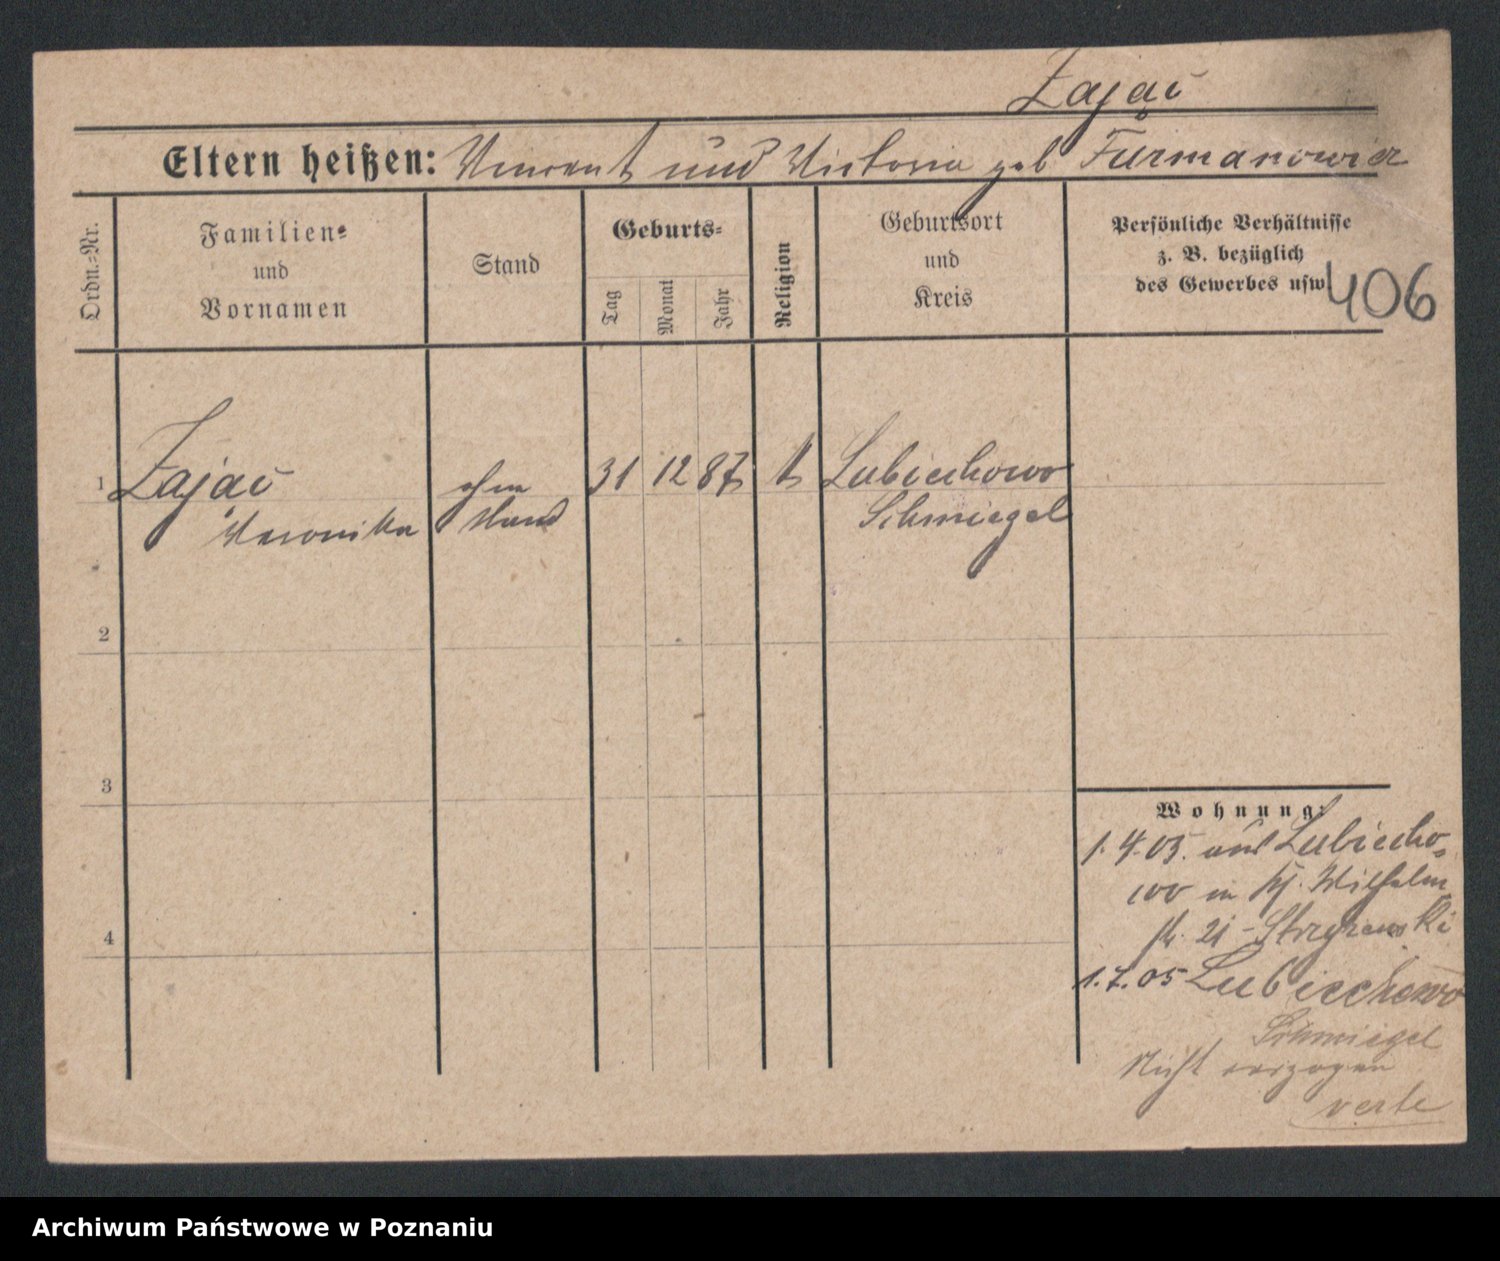 Zając
Eltern heißen: Vincent und Victoria geb Furmanowicz
Ordn.-Nr.
Familien-
und
Vornamen
Stand
Geburts-
Tag
Monat
Jahr
Religion
Geburtsort
und
Kreis
Persönliche Verhältnisse
z. B. bezüglich
des Gewerbes usw.
406
1
Zając
Veronika
ohne
Stand
31 12 87
k
Lubiechowo
Schmiegel
2
3
4
Wohnung:
1.4.05. aus Lubiecho-
wo in Wilhelm
str. 21
1.7.05 Lubiechowo
Schmiegel
Nicht verzogen
verte
Archiwum Państwowe w Poznaniu